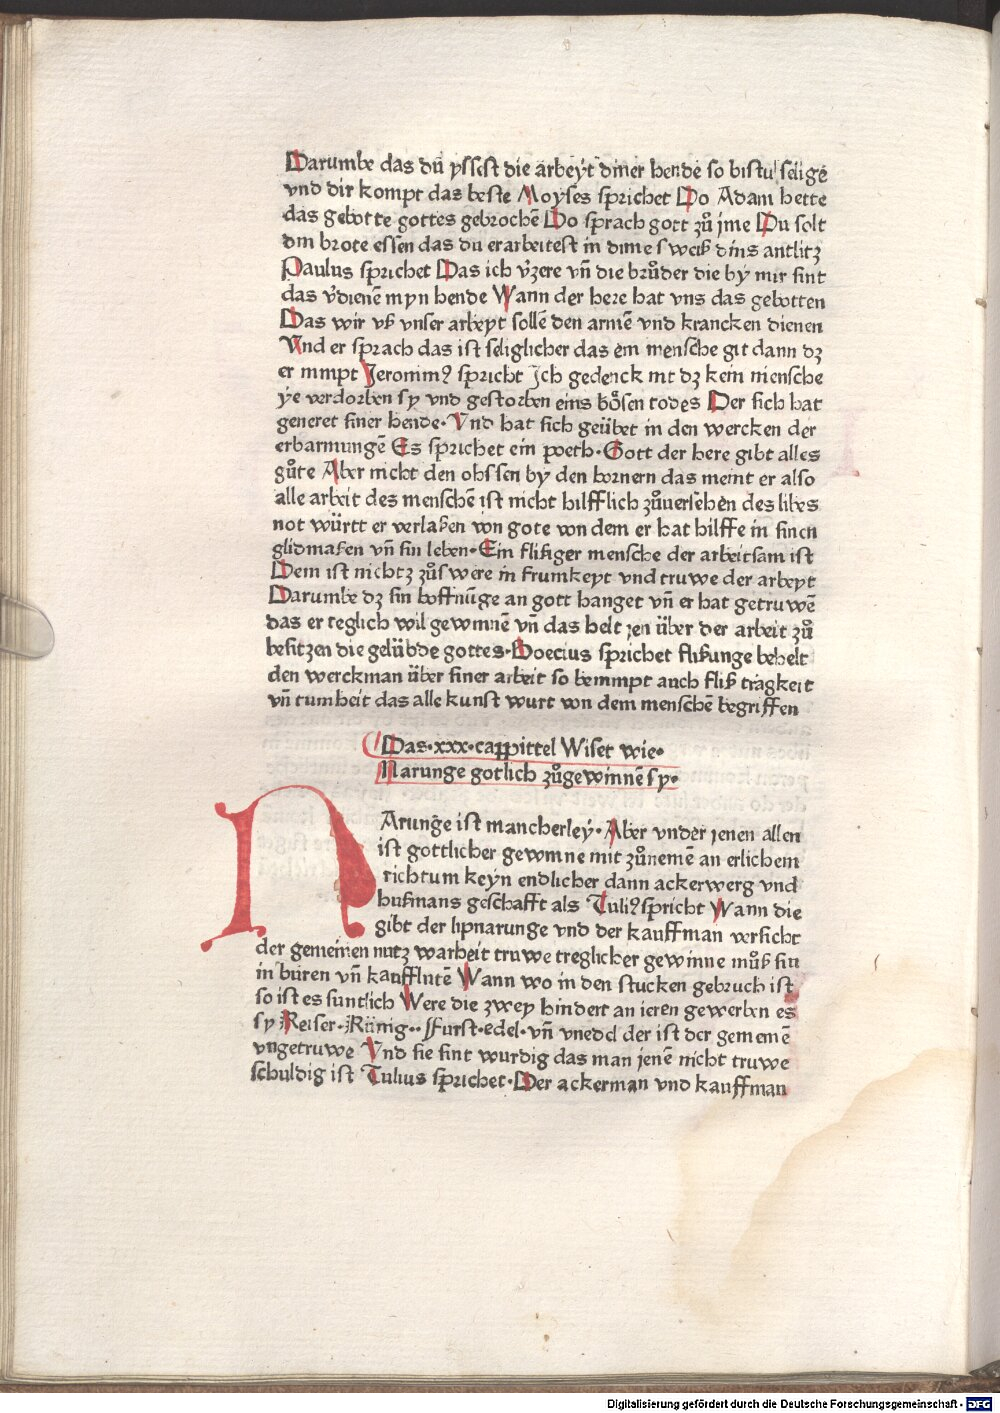 Darumbe das dū yssest die arbeyt diner hende so bistu seligē
vnd dir kompt das beste Moyses sprichet Do Adam hette
das gebotte gottes gebrochē Do sprach gott zů jme Du solt
din brote essen das du erarbeitest in dime sweiß dins antlitz
Paulus sprichet Das ich v̄zere vn̄ die brůder die by mir sint
das v̄dienē myn hende Wann der here hat vns das gebotten
Das wir vß vnser arbeyt sollē den armē vnd krancken dienen
Vnd er sprach das ist seliglicher das ein mensche git dann dz
er nimpt Jeronimꝰ spricht Ich gedenck nit dz kein mensche
ye verdorben sy vnd gestorben eins bösen todes Der sich hat
generet siner hende · Vnd hat sich geübet in den wercken der
erbarmungē Es sprichet ein poeth · Gott der here gibt alles
gůte Aber nicht den ohssen by den hornern das meint er also
alle arbeit des menschē ist nicht hilfflich zůuersehen des libes
not württ er verlaßen von gote von dem er hat hilffe in sinen
glidmaßen vn̄ sin leben · Ein flißiger mensche der arbeitsam ist
Dem ist nichtz zůswere in frumkeyt vnd truwe der arbeyt
Darumbe dz sin hoffnūge an gott hanget vn̄ er hat getruwē
das er teglich wil gewinnē vn̄ das helt jen über der arbeit zů
besitzen die gelübde gottes · Boecius sprichet flißunge behelt
den werckman über siner arbeit so benimpt auch fliß tragkeit
vn̄ tumheit das alle kunst wurt von dem menschē begriffen
Das · xxx · cappittel Wiset wie ·
Narunge gotlich zůgewinnē sy ·
NArunge ist mancherley · Aber vnder jenen allen
ist gottlicher gewinne mit zůnemē an erlichem
richtum keyn endlicher dann ackerwerg vnd
hußmans geschafft als Tuliꝰ spricht Wann die
gibt der lipnarunge vnd der kauffman versicht
der gemeinen nutz warheit truwe treglicher gewinne můß sin
in buren vn̄ kauffluten Wann wo in den stucken gebruch ist
so ist es suntlich Were die zwey hindert an ieren gewerben es
sy Keiser · Künig · · Furst · edel · vn̄ vnedel der ist der gemeinē
vngetruwe Vnd sie sint wurdig das man jenē nicht truwe
schuldig ist Tulius sprichet · Der ackerman vnd kauffman
Digitalisierung gefördert durch die Deutsche Forschungsgemeinschaft - DFG